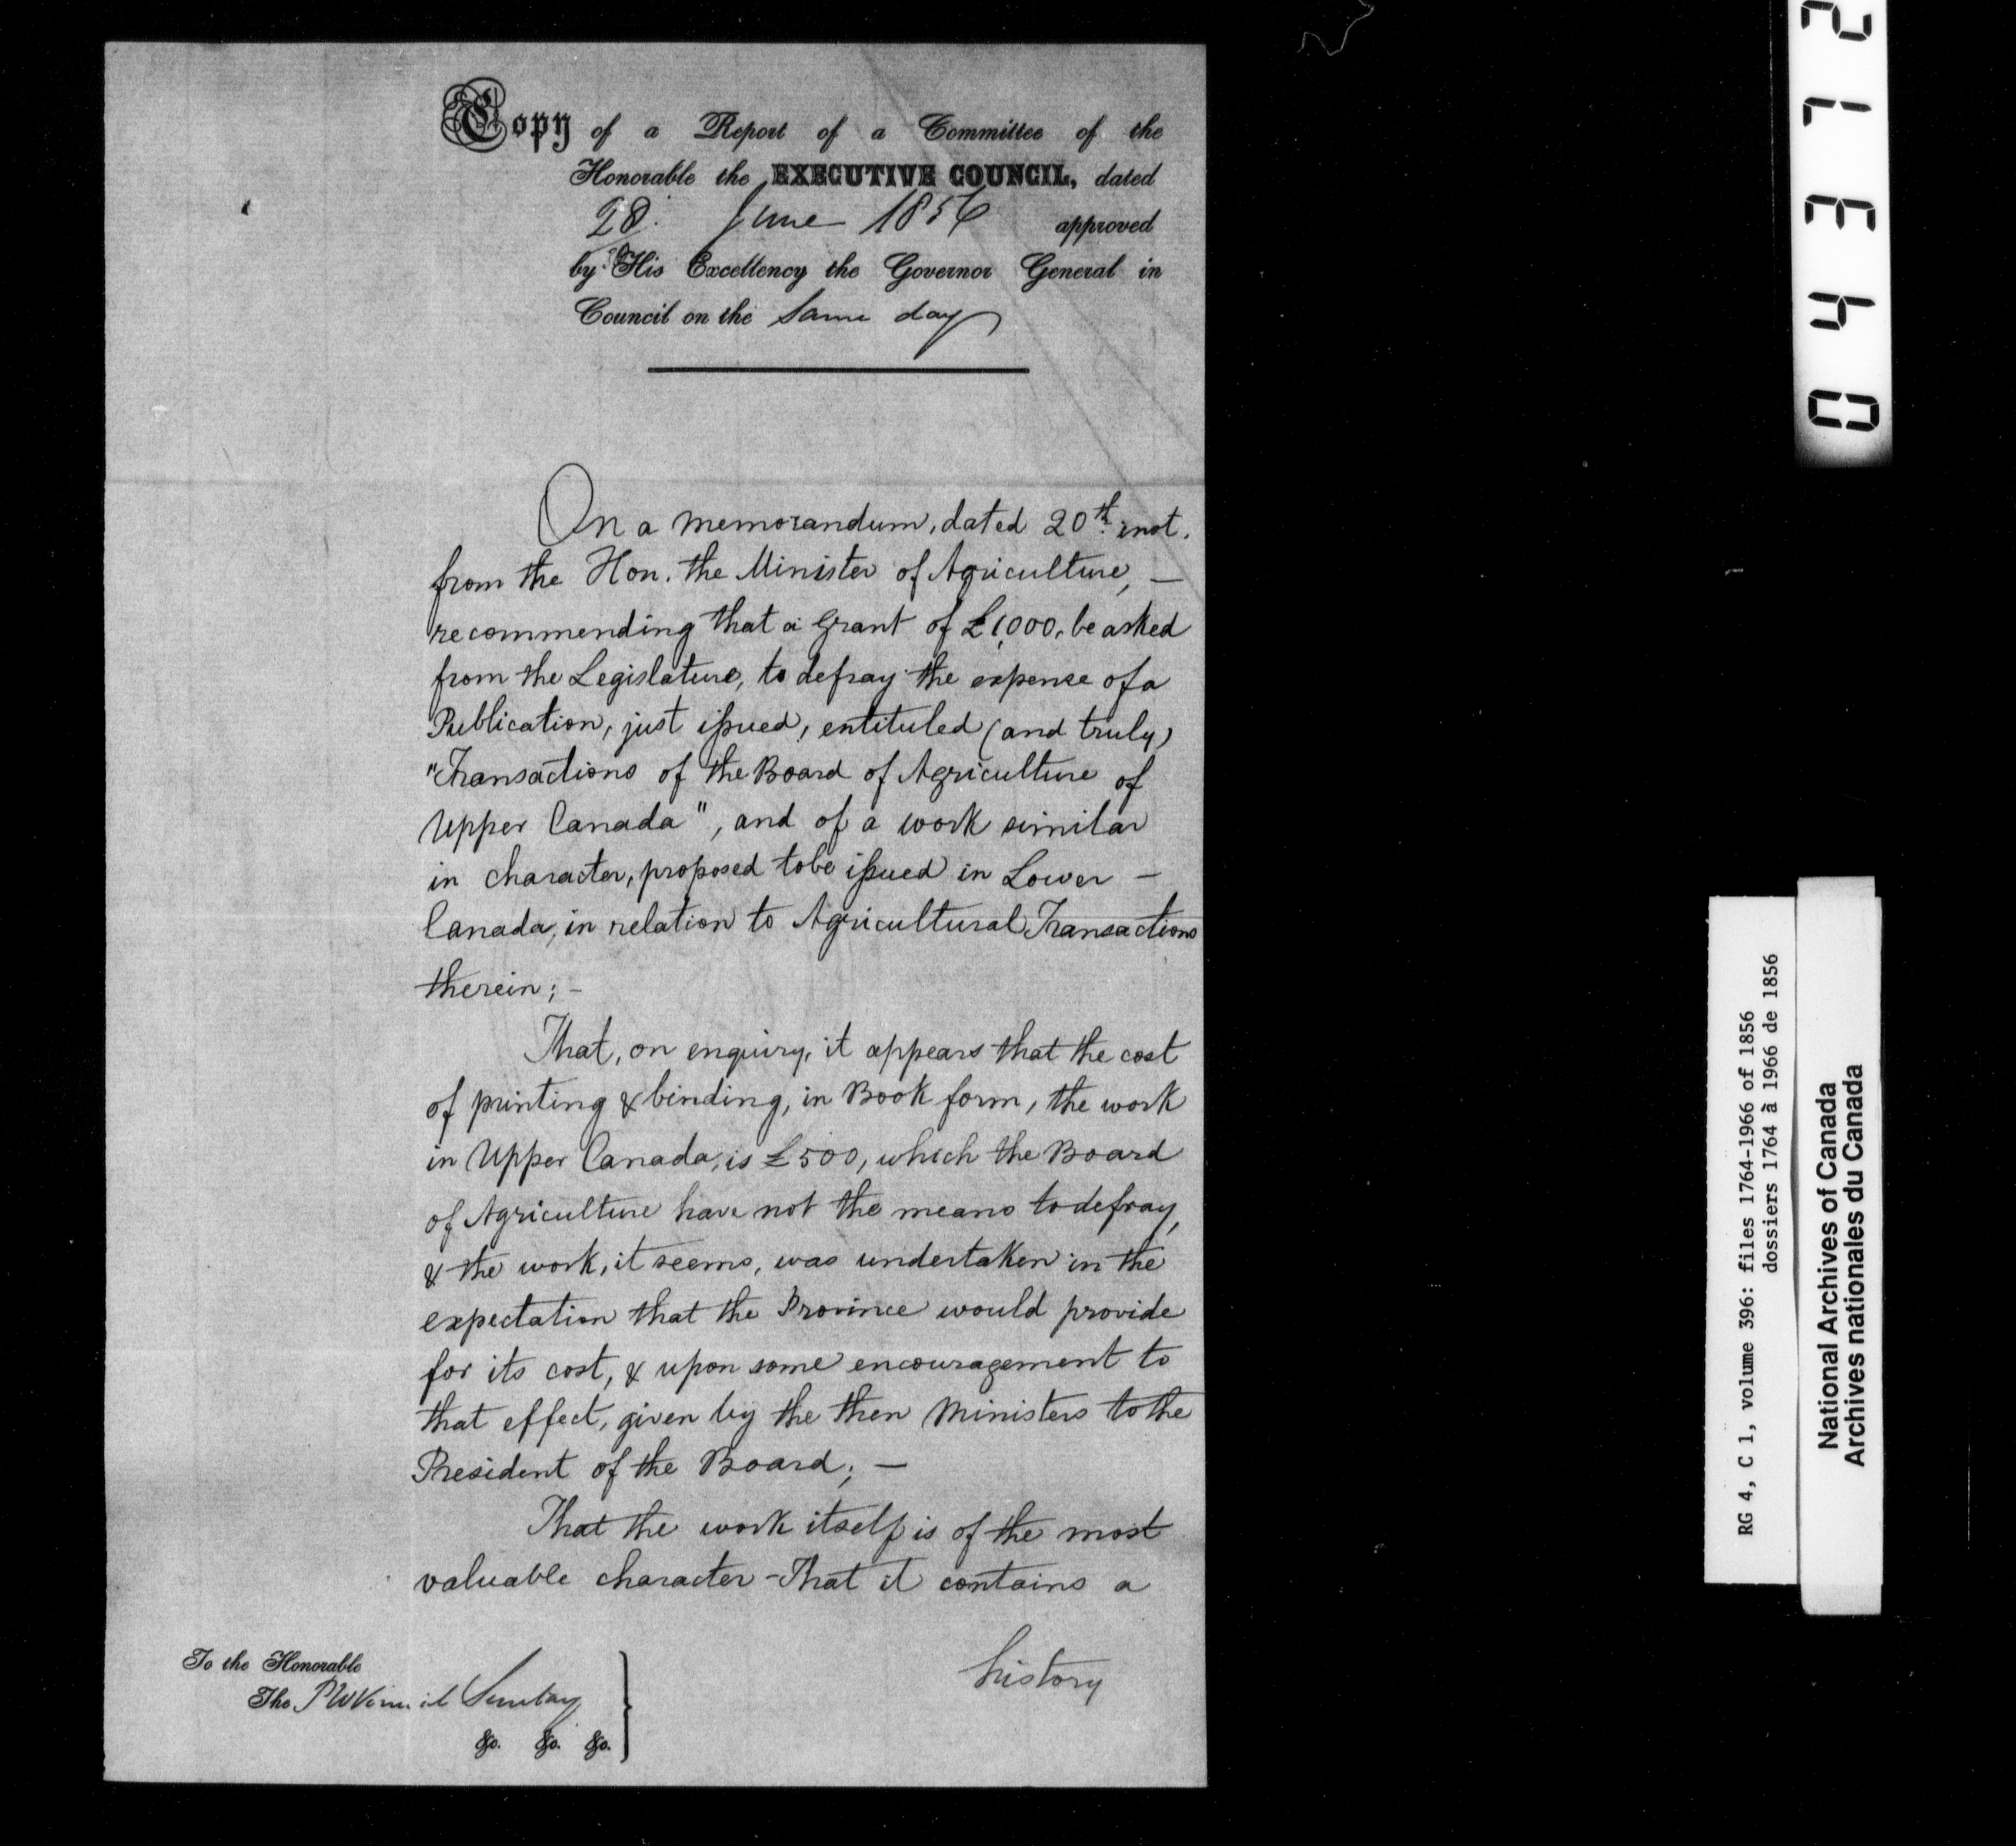 Copy of a Report of a Committee of the
Honorable the EXECUTIVE COUNCIL, dated
28. June 1856 approved
by His Excellency the Governor General in
Council on the same day
On a memorandum, dated 20th. inst.
from the Hon. the Minister of Agriculture, —
recommending that a grant of £1,000, be asked
from the Legislature, to defray the expense of a
Publication, just issued, entituled (and truly)
"Transactions of the Board of Agriculture of
Upper Canada", and of a work similar
in character, proposed to be issued in Lower —
Canada, in relation to Agricultural Transactions
therein; —
That, on enquiry, it appears that the cost
of printing & binding, in Book form, the work
in Upper Canada, is £500, which the Board
of Agriculture have not the means to defray,
& the work, it seems, was undertaken in the
expectation that the Province would provide
for its cost, & upon some encouragement to
that effect, given by the then Ministers to the
President of the Board; —
That the work itself is of the most
valuable character - That it contains a
history
To the Honorable
The Provincial Secretary
&c. &c. &c.
04312
RG 4, C 1, volume 396: files 1764-1966 of 1856
dossiers 1764 à 1966 de 1856
National Archives of Canada
Archives nationales du Canada